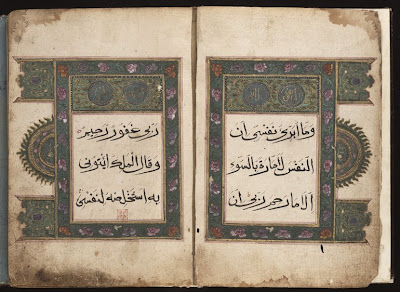 وما ابرئ نفسى ان
النفس لامارة بالسوء
الا ما رحم ربى ان
ربى غفور رحيم
وقال الملك ايتونى
به استخلصه لنفسى